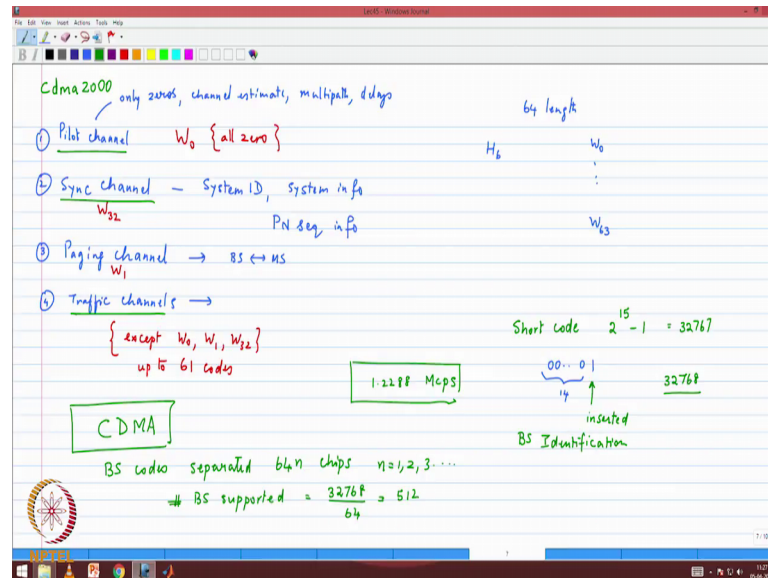 Lec45 - Windows Journal
File Edit View Insert Actions Tools Help
Cdma2000
only zeros, channel estimate, multipath, delays
64 length
① Pilot channel W₀ {all zero}
H₆ W₀
⋮
② Sync channel – System ID, System info
W₃₂
PN seq info
W₆₃
③ Paging channel → BS ↔ MS
W₁
④ Traffic channels →
{except W₀, W₁, W₃₂}
up to 61 codes
Short code 2¹⁵ - 1 = 32767
00.. 0 1
14
32768
inserted
BS Identification
1.2288 Mcps
CDMA
BS codes separated 64n chips n=1, 2, 3 ....
# BS supported = 32768/64 = 512
NPTEL
7